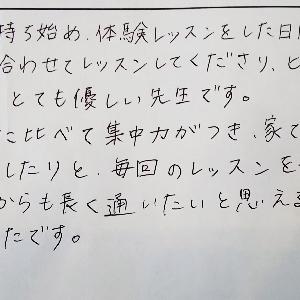 持ち始め、体験レッスンをした日
合わせてレッスンしてくださり、ピ
とても優しい先生です。
に比べて集中力がつき、家で
したりと、毎回のレッスンを
からも長く通いたいと思える
たです。